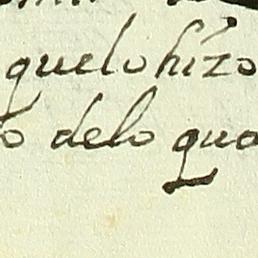 quelo hizo
o delo qua